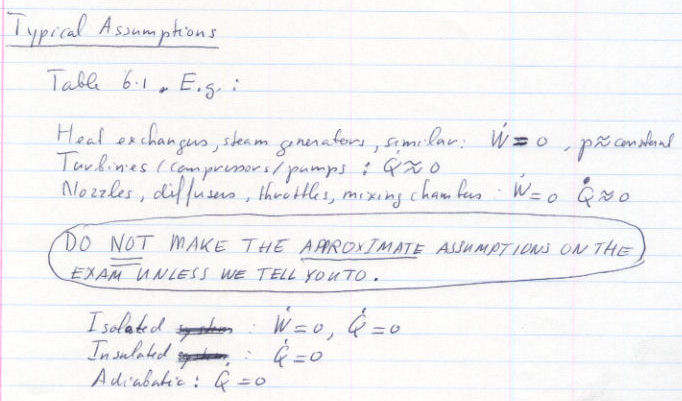 Typical Assumptions
Table 6.1. E.g.:
Heat exchangers, steam generators, similar: Ẇ = 0, p ≈ constant
Turbines/compressors/pumps: Q̇ ≈ 0
Nozzles, diffusers, throttles, mixing chambers: Ẇ = 0 Q̇ ≈ 0
DO NOT MAKE THE APPROXIMATE ASSUMPTIONS ON THE
EXAM UNLESS WE TELL YOU TO.
Isolated system: Ẇ = 0, Q̇ = 0
Insulated system: Q̇ = 0
Adiabatic: Q̇ = 0